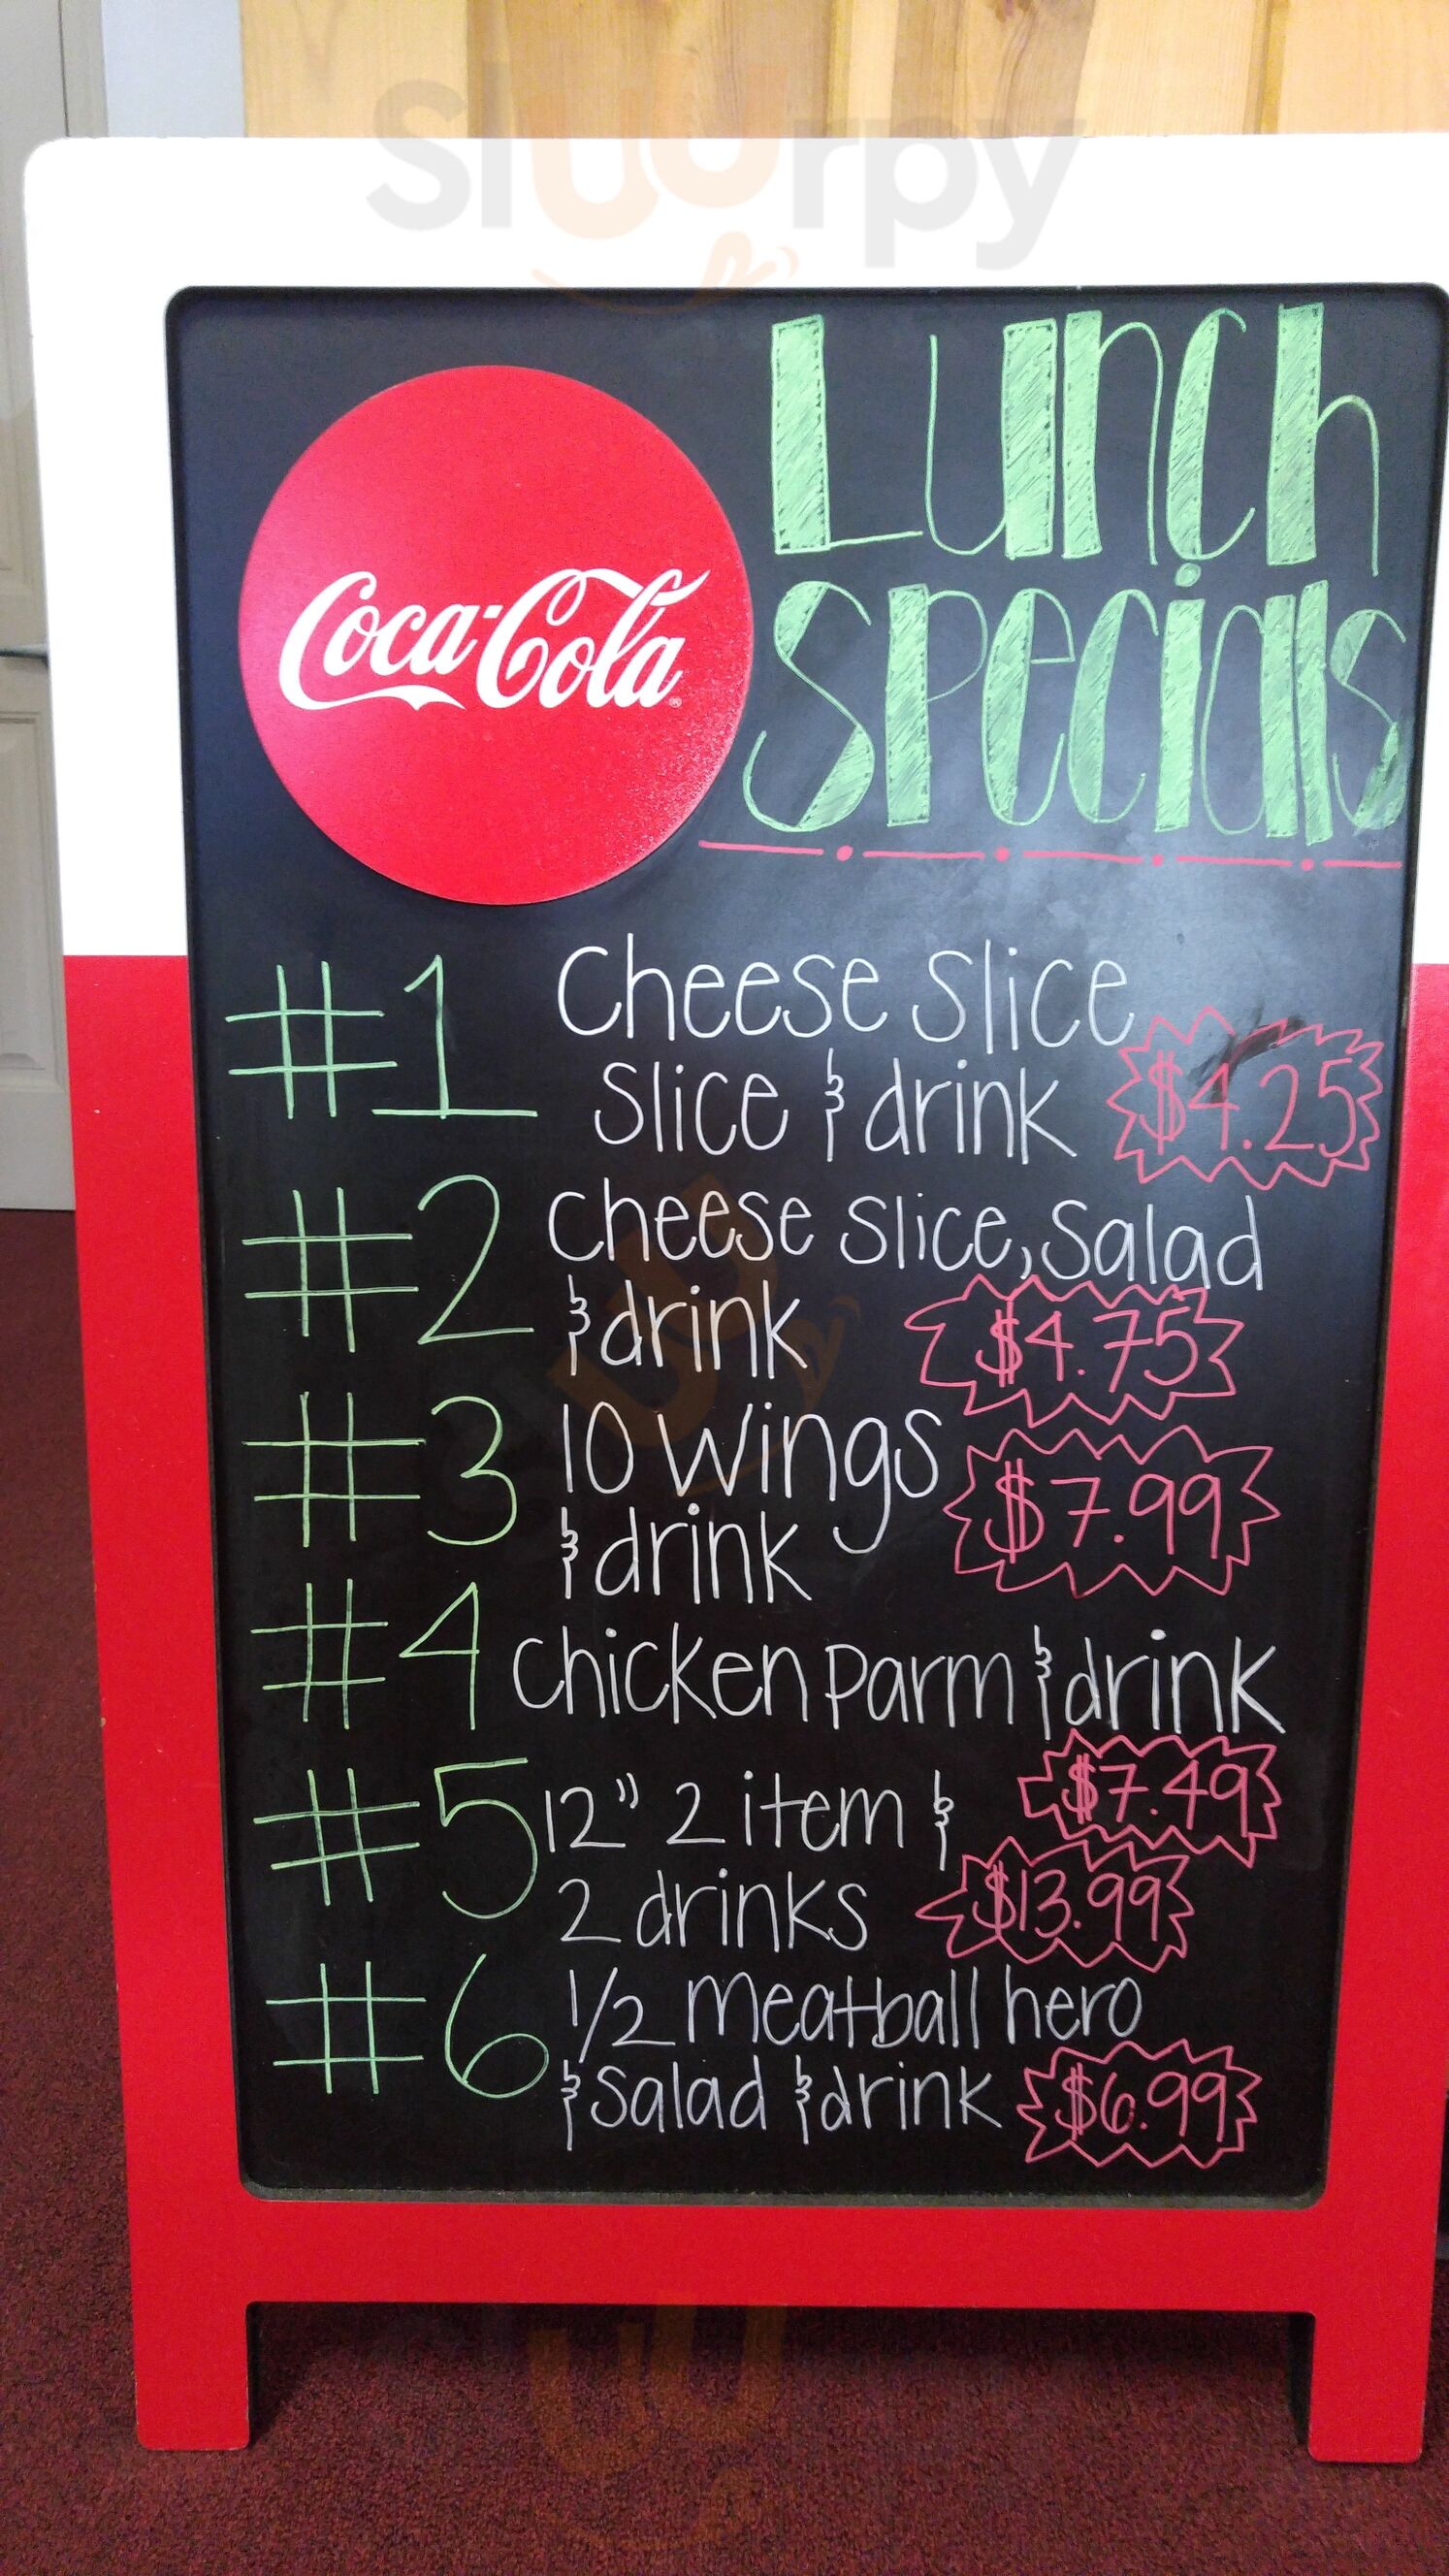 Sluurpy
Lunch
Specials
Coca-Cola
#1 Cheese Slice
Slice & drink $4.25
#2 Cheese Slice, Salad
& drink $4.75
#3 10 Wings
& drink $7.99
#4 Chicken Parm & drink
$7.49
#5 12" 2 item &
2 drinks $13.99
#6 1/2 Meatball hero
& Salad & drink $6.99